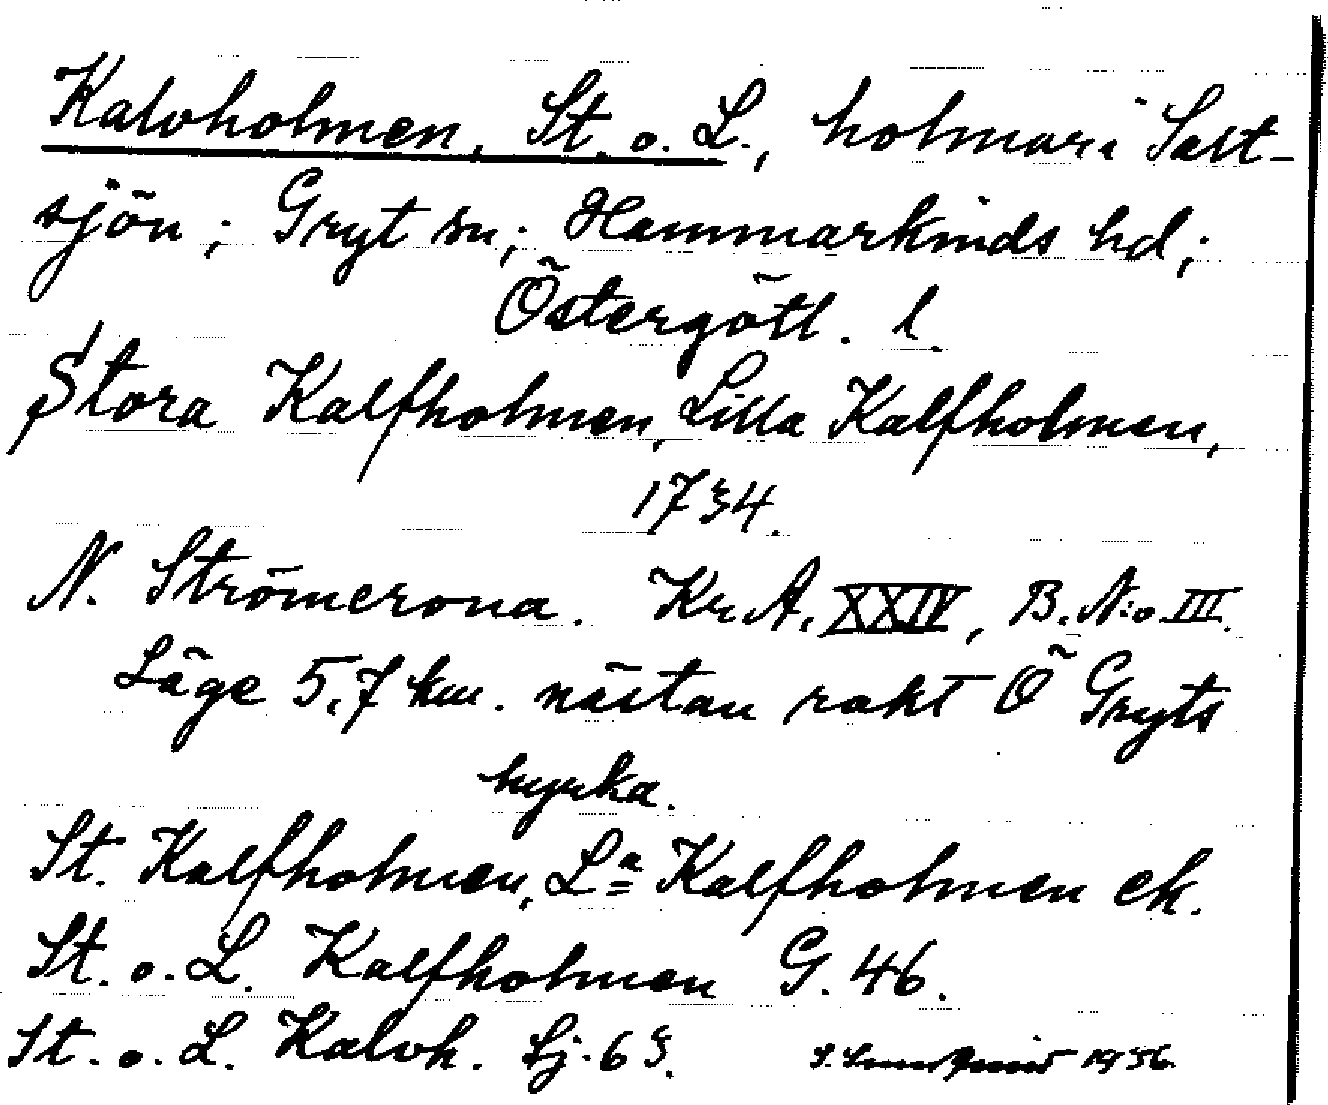 Kalvholmen, St. o. L., holmar i Salt-
sjön; Gryt sn; Hammarkinds hd;
Östergötl. l.
Stora Kalfholmen, Lilla Kalfholmen,
1734.
N. Strömerona. Kr. A. XXIV, B. N:o. III.
Läge 5,7 km. nästan rakt Ö Gryts
kyrka.
St. Kalfholmen, La Kalfholmen ek.
St. o. L. Kalfholmen G. 46.
St. o. L. Kalvh. Sj. 63. 1936.